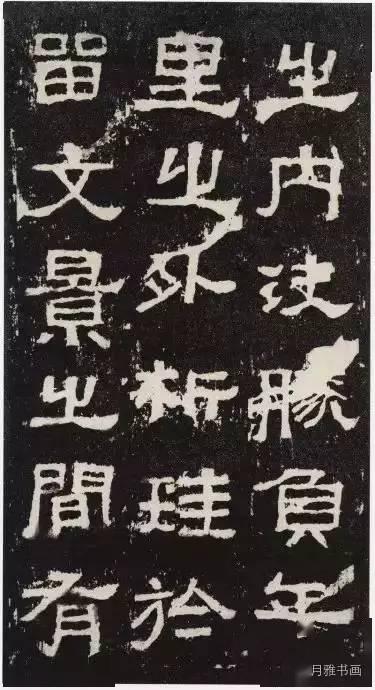 之内決勝負千
里之外析珪於
留文景之間有
月雅书画